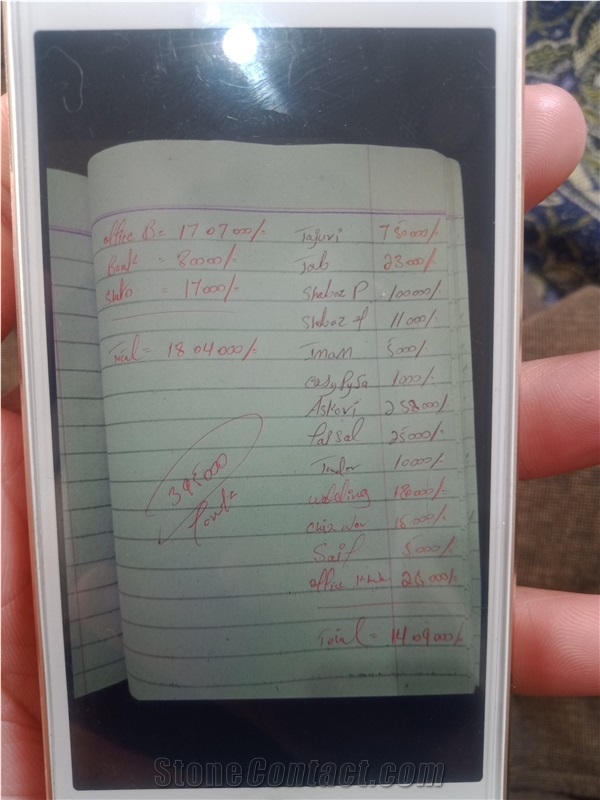 office B = 1707000/-
Bank = 80000/-
= 17000/-
Total = 1804000/-
395000
Tajuri 750000/-
Job 23000/-
Shabaz P 100000/-
Shabaz 11000/-
Imam 5000/-
easypysa 1000/-
Askari 258000/-
Faisal 25000/-
10000/-
welding 180000/-
18000/-
Saif 5000/-
office
Total = 1409000/-
StoneContact.com